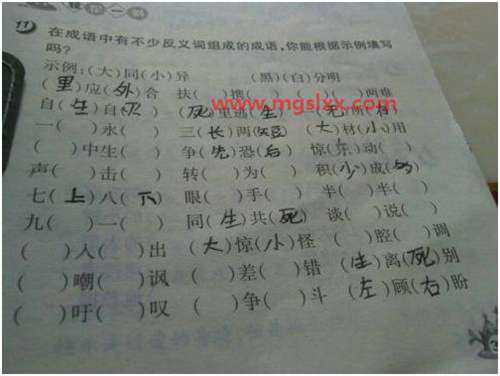 11 在成语中有不少反义词组成的成语,你能根据示例填写
吗?
示例:(大)同(小)异 (黑)(白)分明
(里)应(外)合 扶( )携( ) ( )( )两难
自(生)自(灭) (死)里逃(生)
www.mgslxx.com
一( )永( ) 三(长)两(短) (大)材(小)用
( )中生( ) 争(先)恐(后) 惊( )动( )
声( )击( ) 转( )为( ) 积(小)成( )
七(上)八(下) 眼( )手( ) 半( )半( )
九( )一( ) 同(生)共(死) 谈( )说( )
( )入( )出 (大)惊(小)怪 ( )腔( )调
( )嘲( )讽 ( )差( )错 (生)离(死)别
( )吁( )叹 ( )争( )斗 (左)顾(右)盼